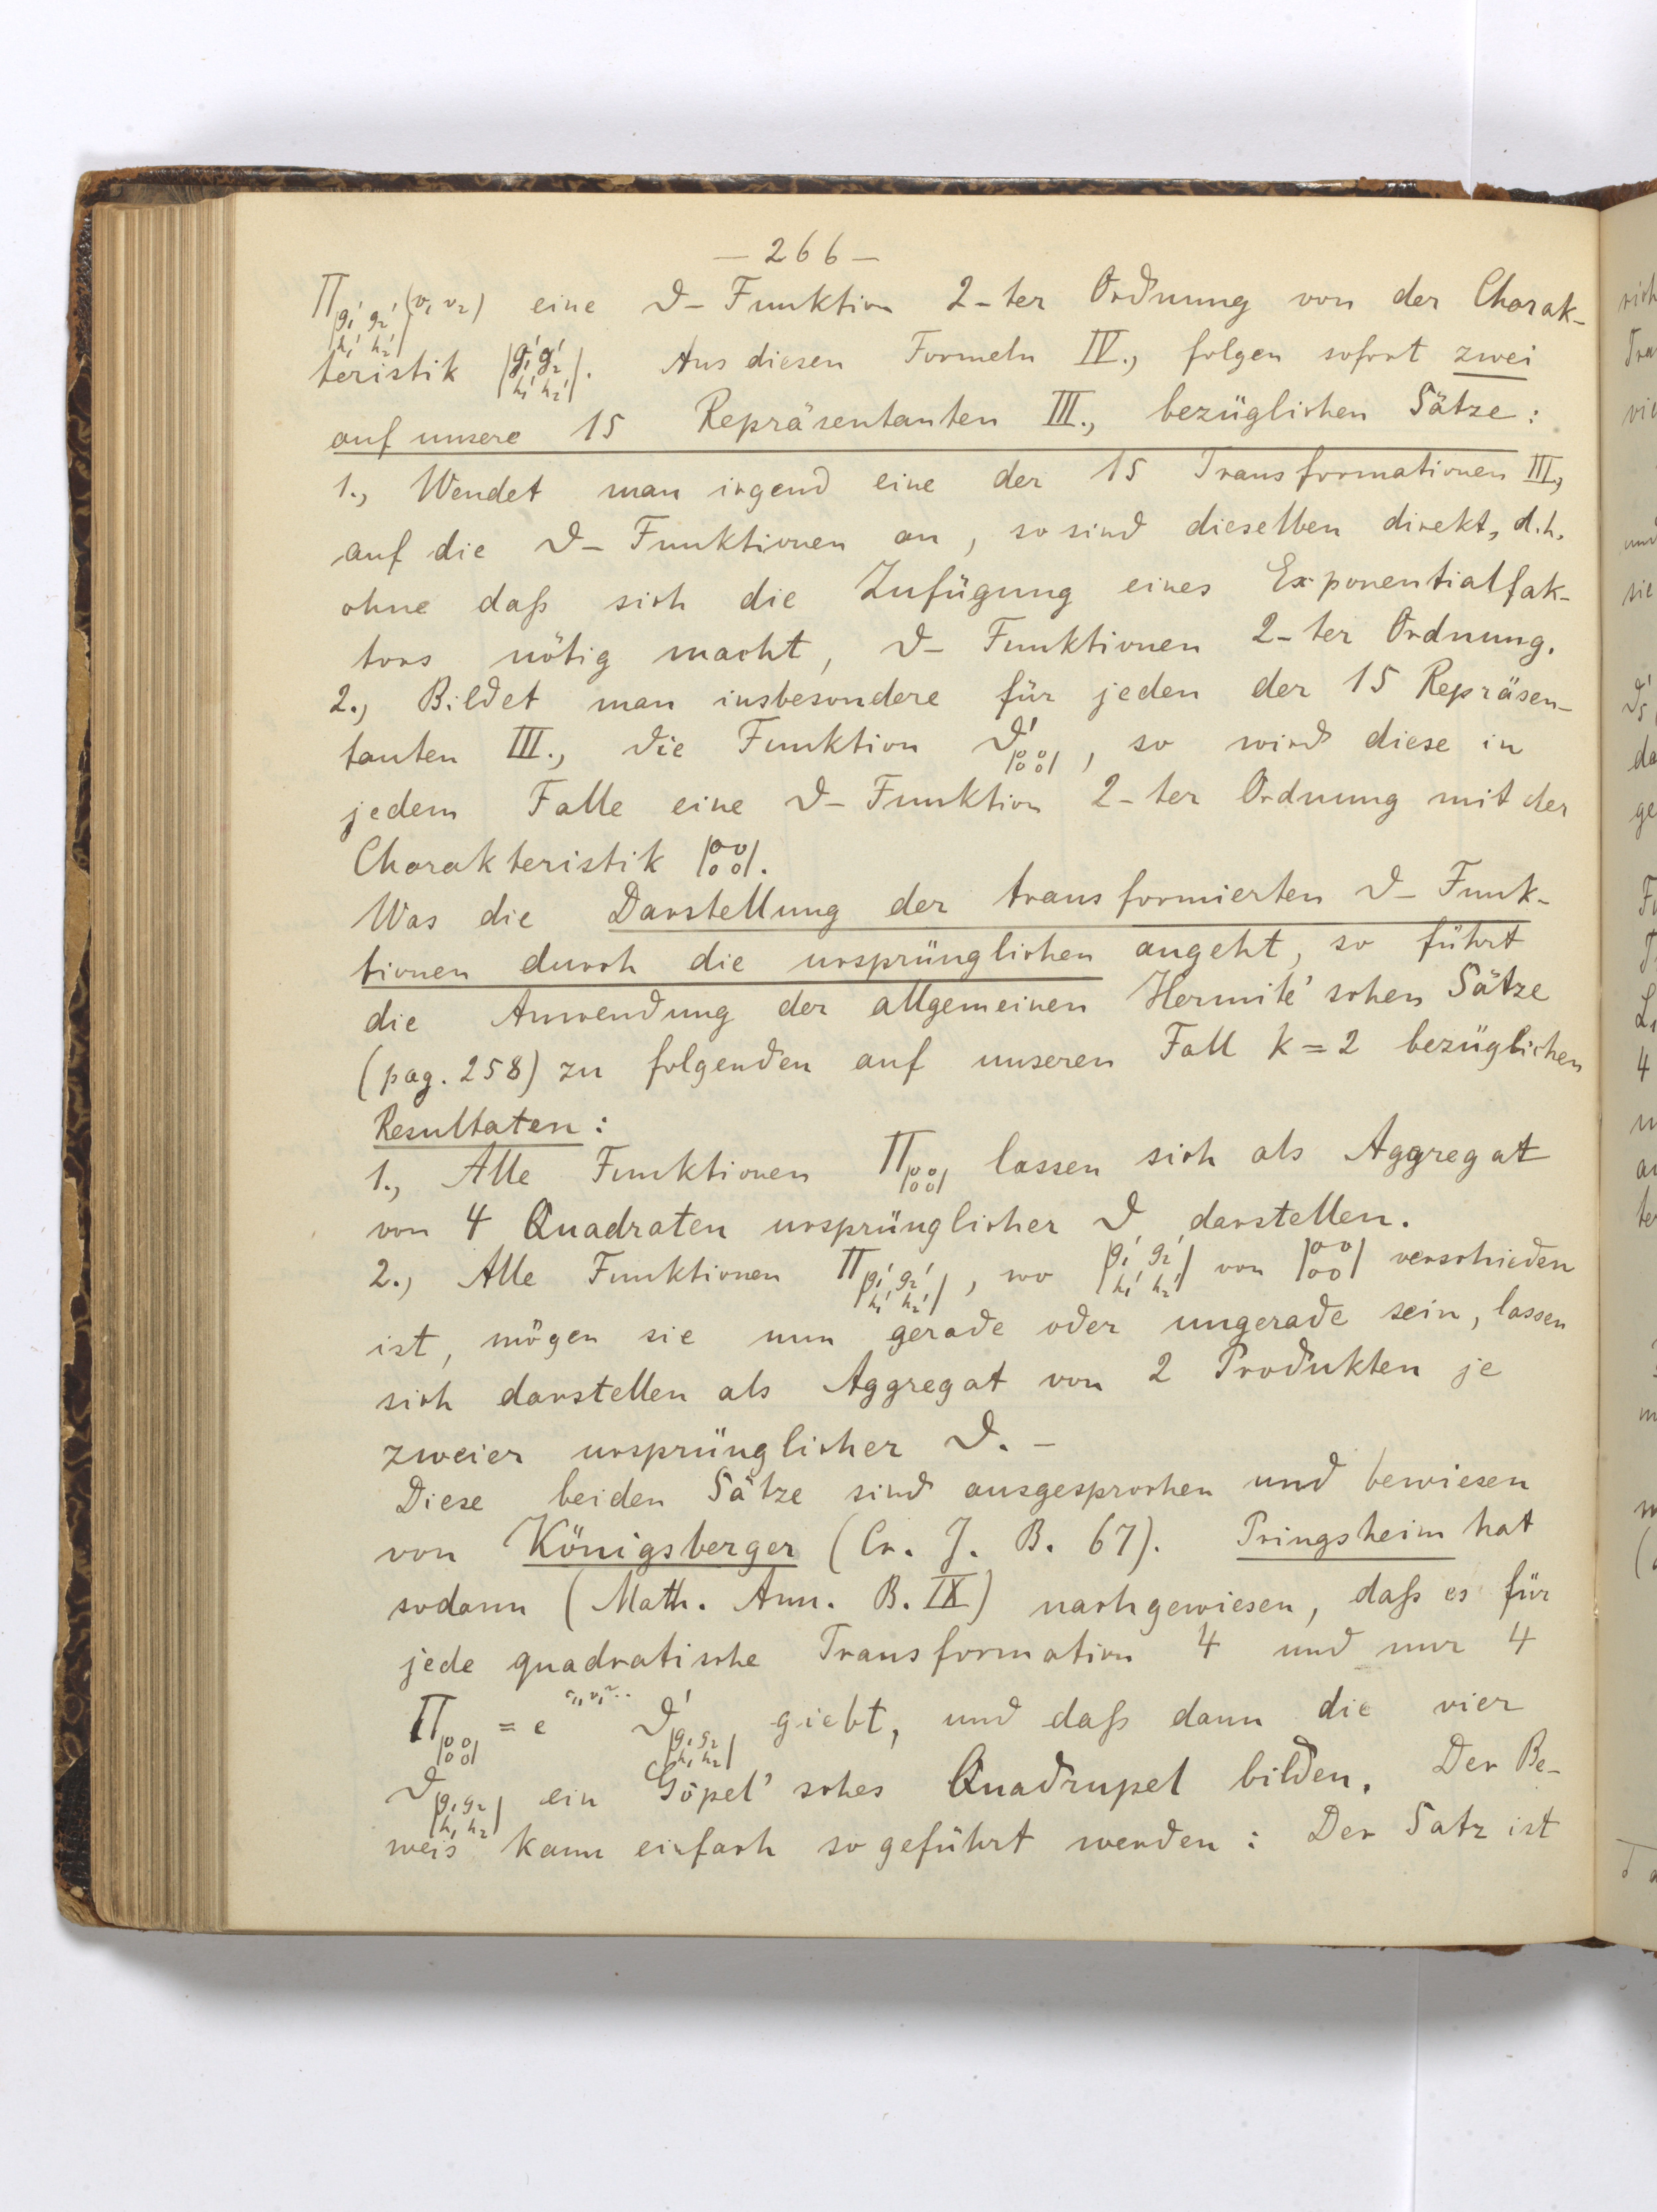 – 266 –
Π|g₁' g₂'|h₁' h₂'|(v₁ v₂) eine ϑ-Funktion 2-ter Ordnung von der Charak-
teristik |g₁' g₂'|h₁' h₂'|. Aus diesen Formeln IV., folgen sofort zwei
auf unsere 15 Repräsentanten III., bezüglichen Sätze:
1., Wendet man irgend eine der 15 Transformationen III.,
auf die ϑ-Funktionen an, so sind dieselben direkt, d.h.
ohne daß sich die Zufügung eines Exponentialfak-
tors nötig macht, ϑ-Funktionen 2-ter Ordnung.
2., Bildet man insbesondere für jeden der 15 Repräsen-
tanten III., die Funktion ϑ'|0 0|0 0|, so wird diese in
jedem Falle eine ϑ-Funktion 2-ter Ordnung mit der
Charakteristik |0 0|0 0|.
Was die Darstellung der transformierten ϑ-Funk-
tionen durch die ursprünglichen angeht, so führt
die Anwendung der allgemeinen Hermite'schen Sätze
(pag. 258) zu folgenden auf unseren Fall k = 2 bezüglichen
Resultaten:
1., Alle Funktionen Π|0 0|0 0| lassen sich als Aggregat
von 4 Quadraten ursprünglicher ϑ darstellen.
2., Alle Funktionen Π|g₁' g₂'|h₁' h₂'|, wo |g₁' g₂'|h₁' h₂'| von |0 0|0 0| verschieden
ist, mögen sie nun gerade oder ungerade sein, lassen
sich darstellen als Aggregat von 2 Produkten je
zweier ursprünglicher ϑ. –
Diese beiden Sätze sind ausgesprochen und bewiesen
von Königsberger (Cr. J. B. 67). Pringsheim hat
sodann (Math. Ann. B. IX) nachgewiesen, daß es für
jede quadratische Transformation 4 und nur 4
Π|0 0|0 0| = e^{c₁₁v₁²..} ϑ'|g₁ g₂|h₁ h₂| giebt, und daß dann die vier
ϑ|g₁ g₂|h₁ h₂| ein Göpel'sches Quadrupel bilden. Der Be-
weis kann einfach so geführt werden: Der Satz ist